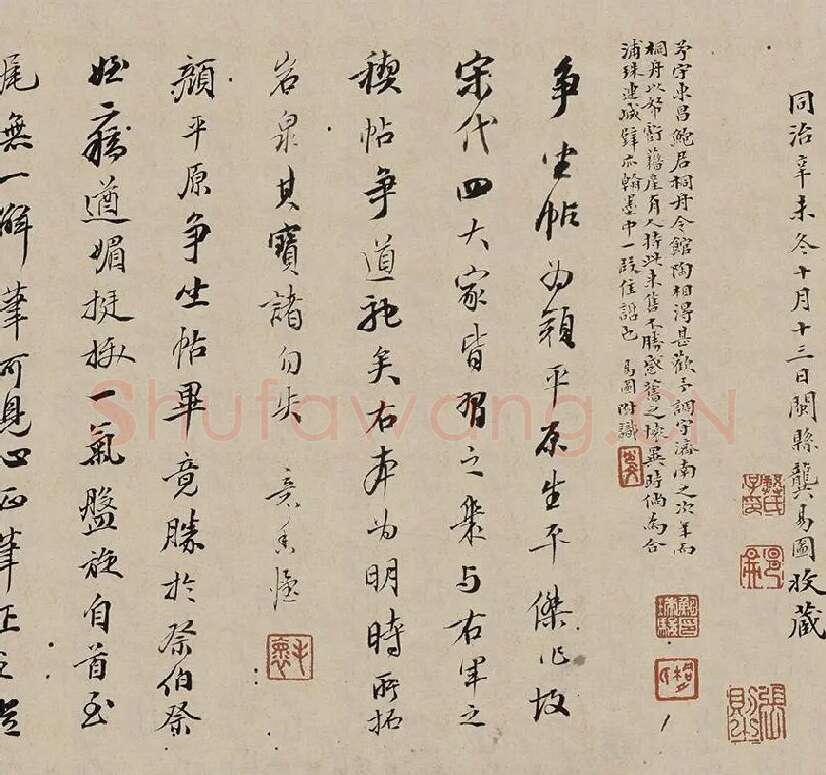 同治辛未冬十月十三日閩縣龔易圖收藏
守東昌鮑居桐舟令館陶相得甚歡予調守濟南之次年而
桐舟以帑虧籍產有人持此來售不勝感舊之懷異時倘為合
浦珠連城璧亦翰墨中一段佳話也 易圖附識
爭坐帖為顏平原生平傑作故
宋代四大家皆習之幾與右軍之
禊帖爭道馳矣右本為明時所拓
岩泉其寶諸勿失
顏平原爭坐帖畢竟勝於祭伯祭
姪遒媚挺拔一氣盤旋自首至
尾無一懈筆可見心正筆正
Shufawang.CN